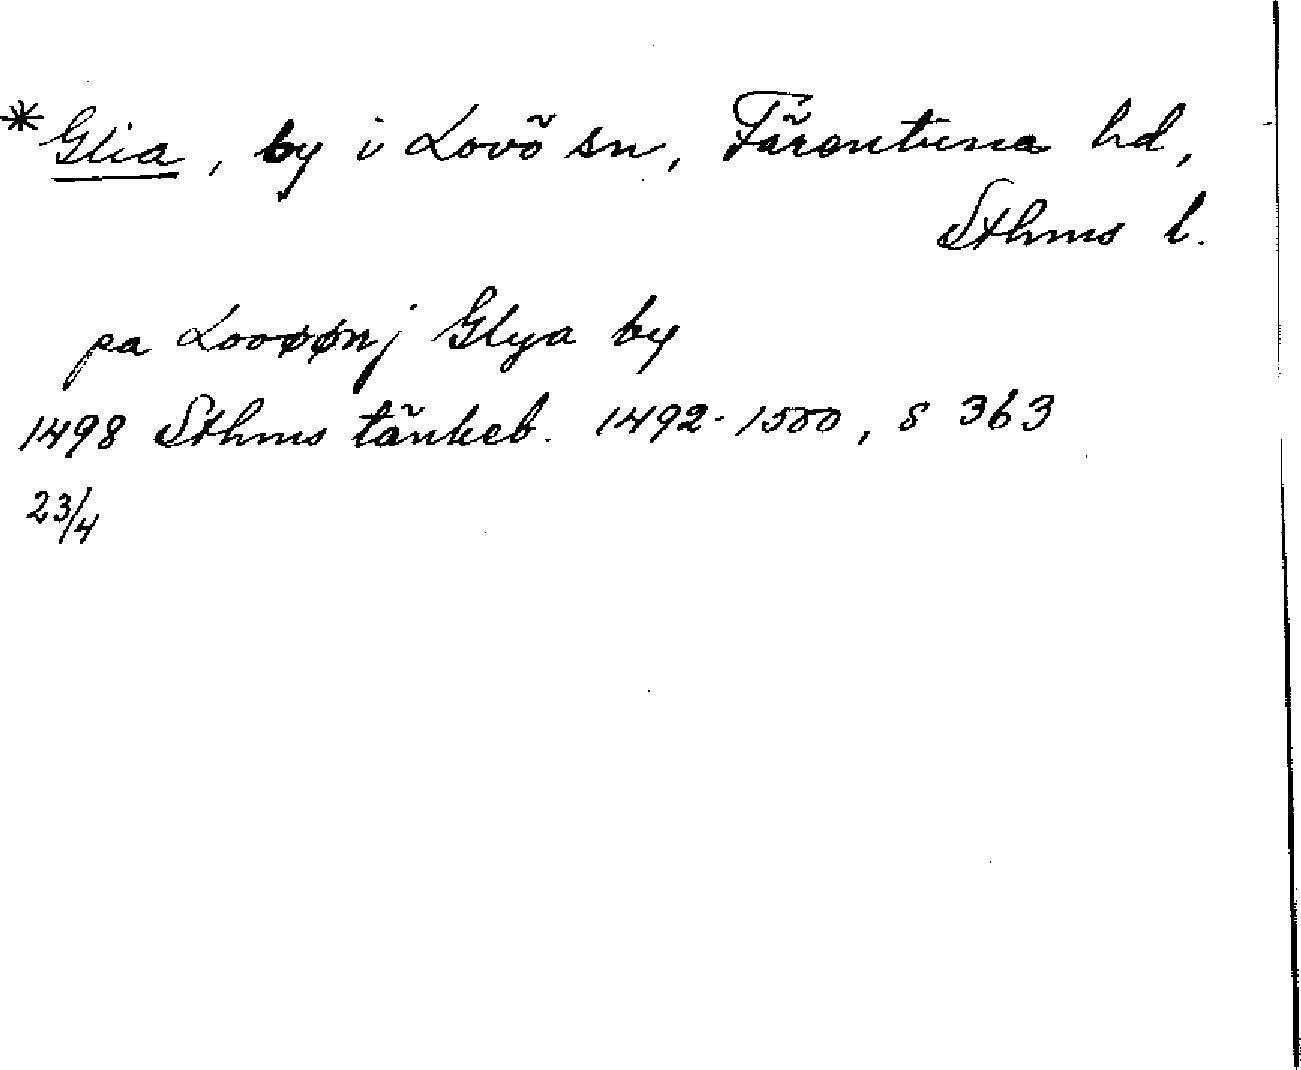 *Glia, by i Lovö sn, Färentuna hd,
Sthms l.
pa Lovøønj Glya by
1498 Sthms tänkeb. 1492-1500, s 363
23/4